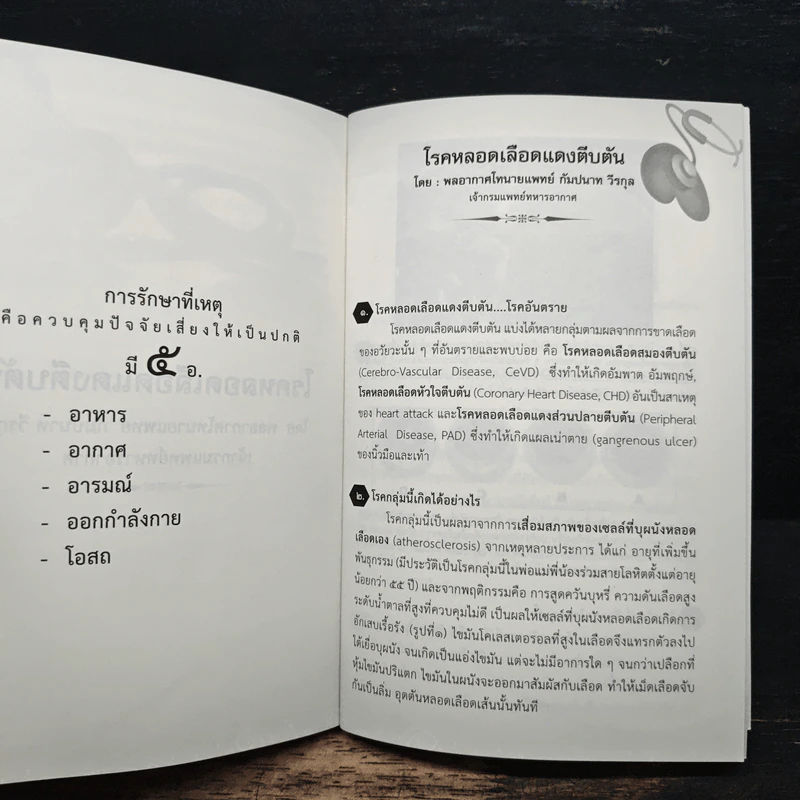 การรักษาที่เหตุ
คือควบคุมปัจจัยเสี่ยงให้เป็นปกติ
มี ๕ อ.
- อาหาร
- อากาศ
- อารมณ์
- ออกกำลังกาย
- โอสถ
โรคหลอดเลือดแดงตีบตัน
โดย : พลอากาศโทนายแพทย์ กัมปนาท วีรกุล
เจ้ากรมแพทย์ทหารอากาศ
๑. โรคหลอดเลือดแดงตีบตัน....โรคอันตราย
โรคหลอดเลือดแดงตีบตัน แบ่งได้หลายกลุ่มตามผลจากการขาดเลือด
ของอวัยวะนั้น ๆ ที่อันตรายและพบบ่อย คือ โรคหลอดเลือดสมองตีบตัน
(Cerebro-Vascular Disease, CeVD) ซึ่งทำให้เกิดอัมพาต อัมพฤกษ์,
โรคหลอดเลือดหัวใจตีบตัน (Coronary Heart Disease, CHD) อันเป็นสาเหตุ
ของ heart attack และโรคหลอดเลือดแดงส่วนปลายตีบตัน (Peripheral
Arterial Disease, PAD) ซึ่งทำให้เกิดแผลเน่าตาย (gangrenous ulcer)
ของนิ้วมือและเท้า
๒. โรคกลุ่มนี้เกิดได้อย่างไร
โรคกลุ่มนี้เป็นผลมาจากการเสื่อมสภาพของเซลล์ที่บุผนังหลอด
เลือดเอง (atherosclerosis) จากเหตุหลายประการ ได้แก่ อายุที่เพิ่มขึ้น
พันธุกรรม (มีประวัติเป็นโรคกลุ่มนี้ในพ่อแม่พี่น้องร่วมสายโลหิตตั้งแต่อายุ
น้อยกว่า ๕๕ ปี) และจากพฤติกรรมคือ การสูดควันบุหรี่ ความดันเลือดสูง
ระดับน้ำตาลที่สูงที่ควบคุมไม่ดี เป็นผลให้เซลล์ที่บุผนังหลอดเลือดเกิดการ
อักเสบเรื้อรัง (รูปที่๑) ไขมันโคเลสเตอรอลที่สูงในเลือดจึงแทรกตัวลงไป
ใต้เยื่อบุผนัง จนเกิดเป็นแอ่งไขมัน แต่จะไม่มีอาการใด ๆ จนกว่าเปลือกที่
หุ้มไขมันปริแตก ไขมันในผนังจะออกมาสัมผัสกับเลือด ทำให้เม็ดเลือดจับ
กันเป็นลิ่ม อุดตันหลอดเลือดเส้นนั้นทันที